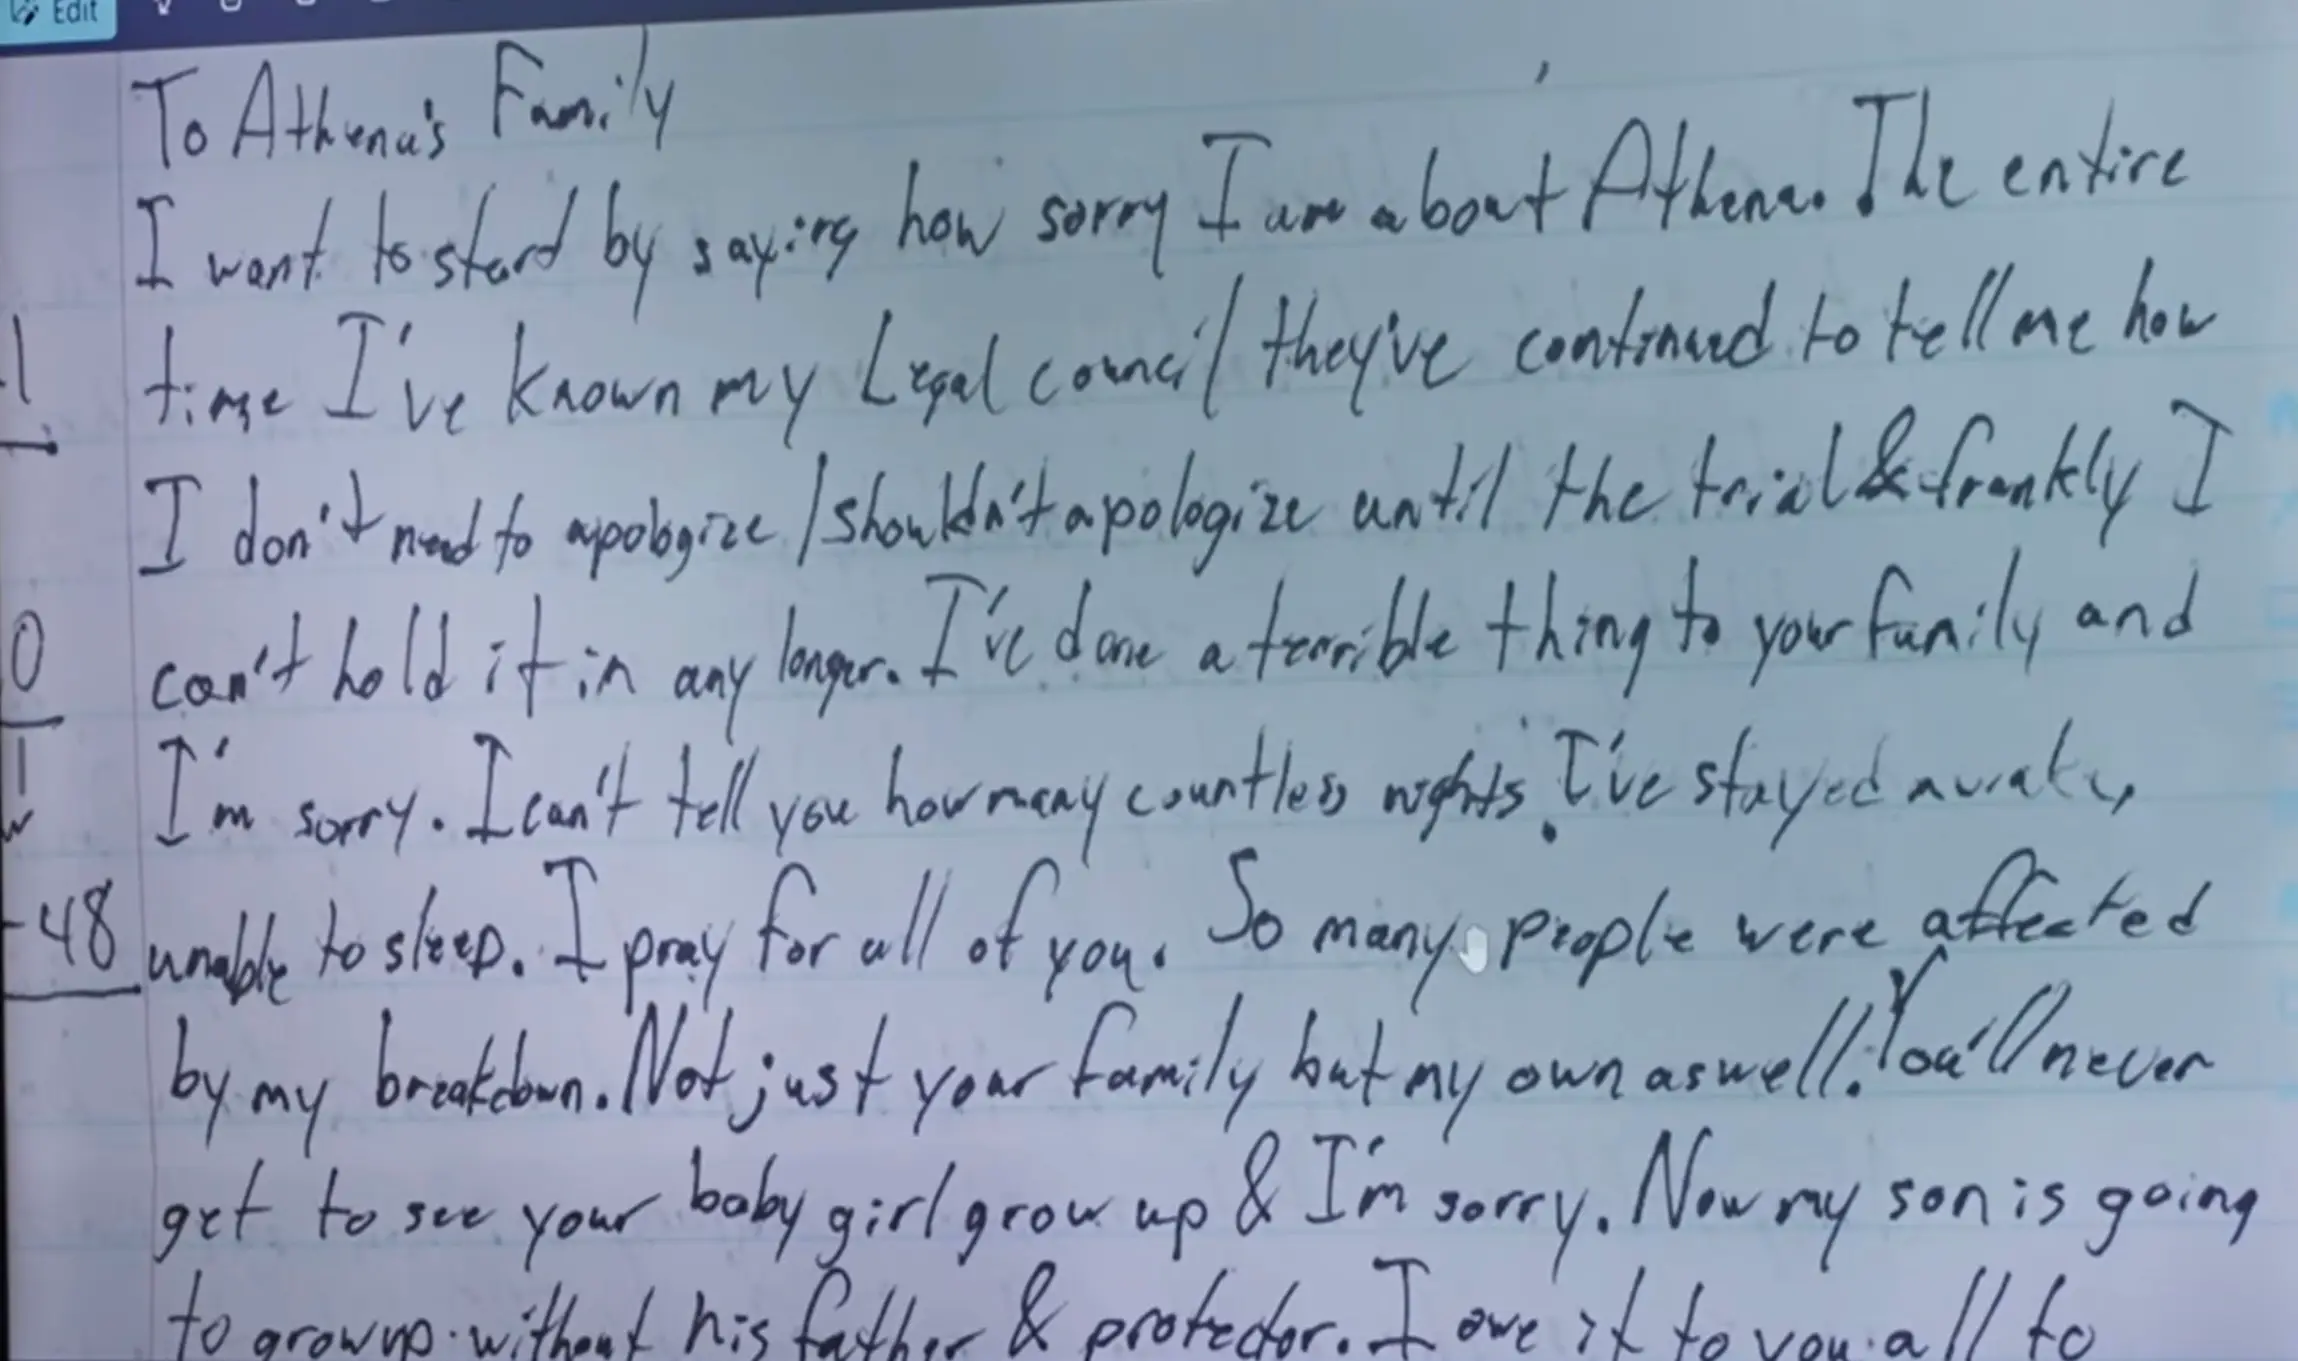 Edit
To Athena's Family
I want to start by saying how sorry I am about Athena. The entire
time I've known my Legal council they've continued to tell me how
I don't need to apologize / shouldn't apologize until the trial & frankly I
can't hold it in any longer. I've done a terrible thing to your family and
I'm sorry. I can't tell you how many countless nights I've stayed awake,
unable to sleep. I pray for all of you. So many people were affected
by my breakdown. Not just your family but my own as well. You'll never
get to see your baby girl grow up & I'm sorry. Now my son is going
to grow up without his father & protector. I owe it to you all to
-1
0
w
-48